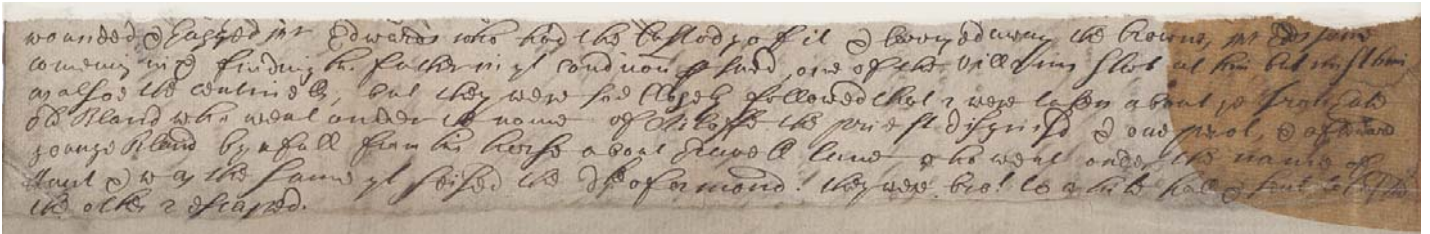 wounded & gagged mr Edwards who had the Custody of it & carryed away the Crowne, mr Eds sone
comeing in & finding his father in yt condition persued, one of the Villains shot at him but mist him
as alsoe the centinells, but they were soe closely followed that 2 were taken about ye Irongate
old Bland who went under the name of the priest disguisd & one perot, & afterward
younge Bland by a fall from his horse about lane who went under the name of
Hunt & was the same yt seised the D of ormond: they were brot to white hall & sent to the
the other 2 escaped.